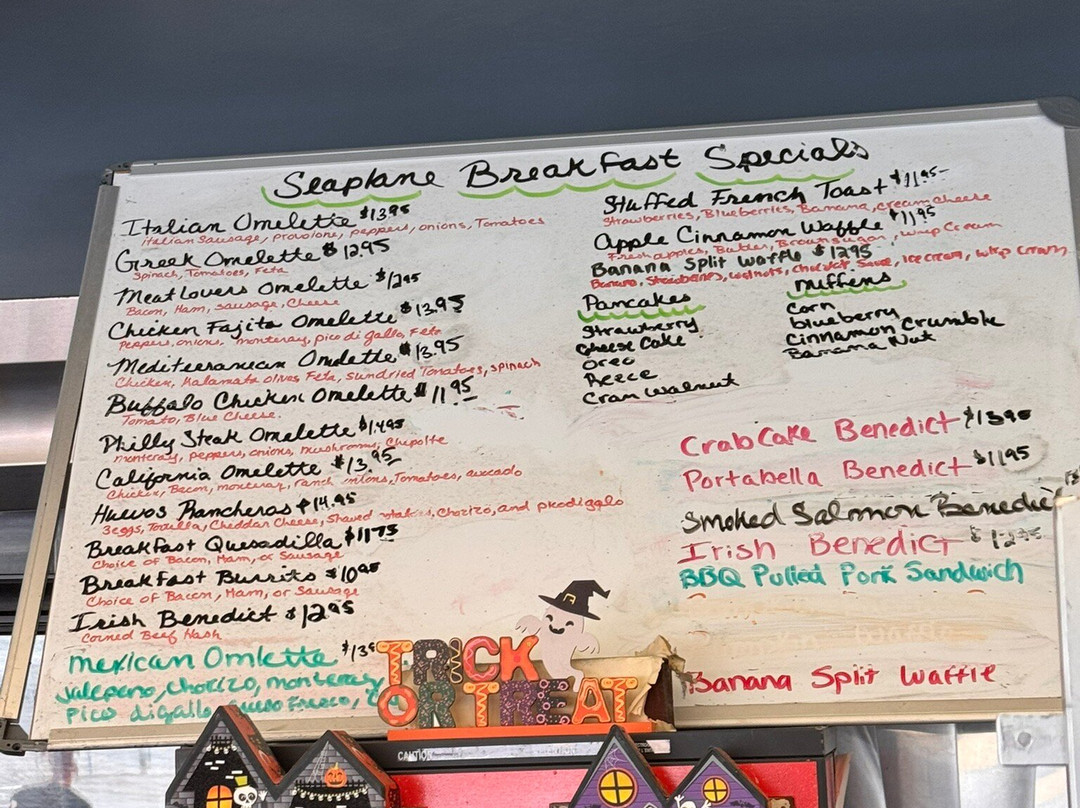 Seaplane Breakfast Specials
Italian Omelette $13.95
italian Sausage, provolone, peppers, onions, Tomatoes
Greek Omelette $12.95
Spinach, Tomatoes, Feta
Meat Lovers Omelette $12.95
Bacon, Ham, Sausage, Cheese
Chicken Fajita Omelette $13.95
Peppers, onions, monteray, pico di gallo, Feta
Mediterranean Omelette $13.95
Chicken, Kalamata olives, Feta, sundried Tomatoes, spinach
Buffalo Chicken Omelette $11.95
Tomato, Blue Cheese.
Philly Steak Omelette $14.95
monteray, peppers, onions, mushrooms, Chepolte
California Omelette $13.95
Chicken, Bacon, monteray, ranch onions, Tomatoes, avocado
Huevos Rancheros $14.95
3 eggs, Tortilla, Cheddar Cheese, Shaved Chorizo, and picodigallo
Breakfast Quesadilla $11.75
Choice of Bacon, Ham, or Sausage
Breakfast Burrito $10.95
Choice of Bacon, Ham, or Sausage
Irish Benedict $12.95
Corned Beef Hash
Mexican Omlette $13
Jalepeno, Chorizo, monteray
Pico digallo, Queso Fresco,
Stuffed French Toast $11.95
Strawberries, Blueberries, Banana, cream cheese
Apple Cinnamon Waffle $11.95
Fresh apples, Butter, Brown sugar, whip Cream
Banana Split Waffle $12.95
Banana, Strawberries, walnuts, chocolate Sauce, Ice cream, whip cream
Pancakes
Strawberry
Cheese Cake
Oreo
Reece
Cran Walnut
Muffens
Corn
blueberry
Cinnamon Crumble
Banana Nut
Crab Cake Benedict $13.95
Portabella Benedict $11.95
Smoked Salmon Benedic
Irish Benedict $12.95
BBQ Pulled Pork Sandwich
Banana Split Waffle
TRICK
OR TREAT
CAUTION